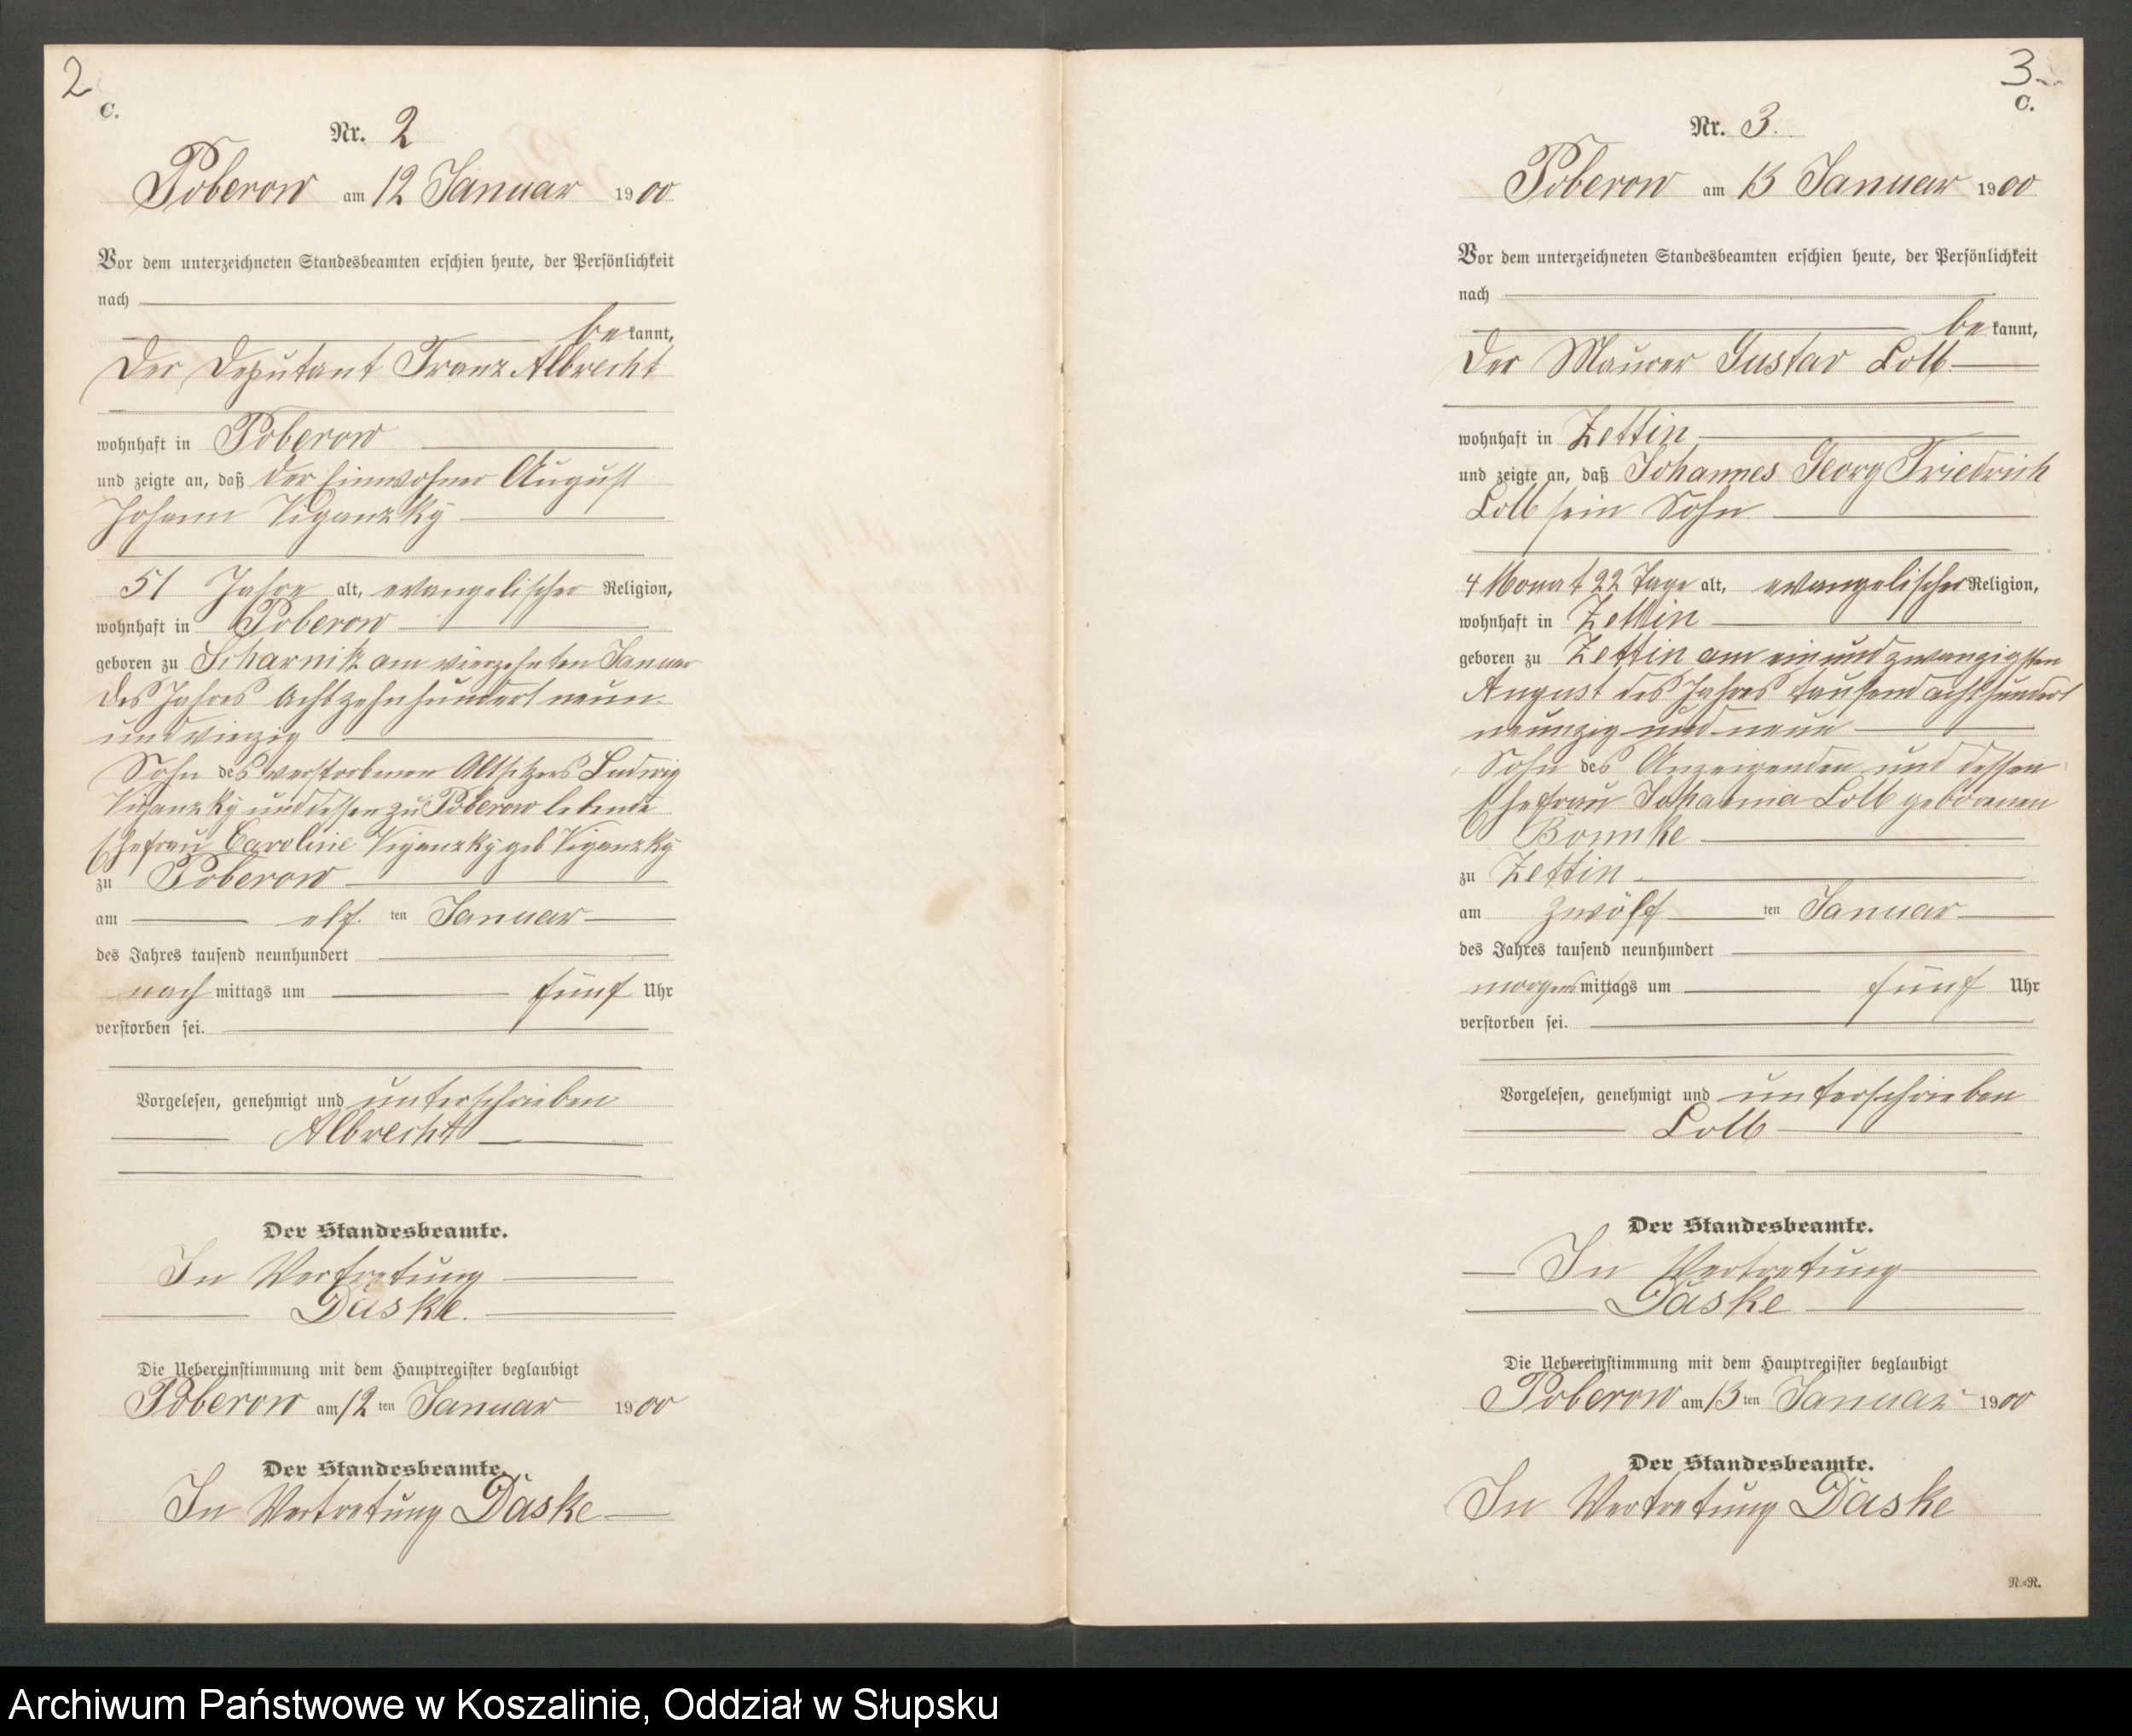 2
C.
Nr. 2
Poberow am 12 Januar 1900
Vor dem unterzeichneten Standesbeamten erschien heute, der Persönlichkeit
nach
be kannt,
der Deputant Franz Albrecht
wohnhaft in Poberow
und zeigte an, daß der Einwohner August
Johann Viganzky
51 Jahre alt, evangelischer Religion,
wohnhaft in Poberow
geboren zu Scharnitz am vierzehnten Januar
des Jahres Achtzehnhundert neun
und vierzig
Sohn des verstorbenen Altsitzers Ludwig
Viganzky und dessen zu Poberow lebende
Ehefrau Caroline Viganzky geb Viganzky
zu Poberow
am elf ten Januar
des Jahres tausend neunhundert
nach mittags um fünf Uhr
verstorben sei.
Vorgelesen, genehmigt und unterschrieben
Albrecht
Der Standesbeamte.
In Vertretung
Däske.
Die Uebereinstimmung mit dem Hauptregister beglaubigt
Poberow am 12 ten Januar 1900
Der Standesbeamte.
In Vertretung Däske
3
C.
Nr. 3.
Poberow am 13 Januar 1900
Vor dem unterzeichneten Standesbeamten erschien heute, der Persönlichkeit
nach
be kannt,
der Maurer Gustav Lolb
wohnhaft in Zettin
und zeigte an, daß Johannes Georg Friedrich
Lolb sein Sohn
4 Monat 22 Tage alt, evangelischer Religion,
wohnhaft in Zettin
geboren zu Zettin am ein und zwanzigsten
August des Jahres tausend achthundert
neunzig und neun
Sohn des Anzeigenden und dessen
Ehefrau Johanna Lolb geborenen
Bönnke
zu Zettin
am zwölf ten Januar
des Jahres tausend neunhundert
morgens mittags um fünf Uhr
verstorben sei.
Vorgelesen, genehmigt und unterschrieben
Lolb
Der Standesbeamte.
In Vertretung
Däske
Die Uebereinstimmung mit dem Hauptregister beglaubigt
Poberow am 13 ten Januar 1900
Der Standesbeamte.
In Vertretung Däske
R.=R.
Archiwum Państwowe w Koszalinie, Oddział w Słupsku